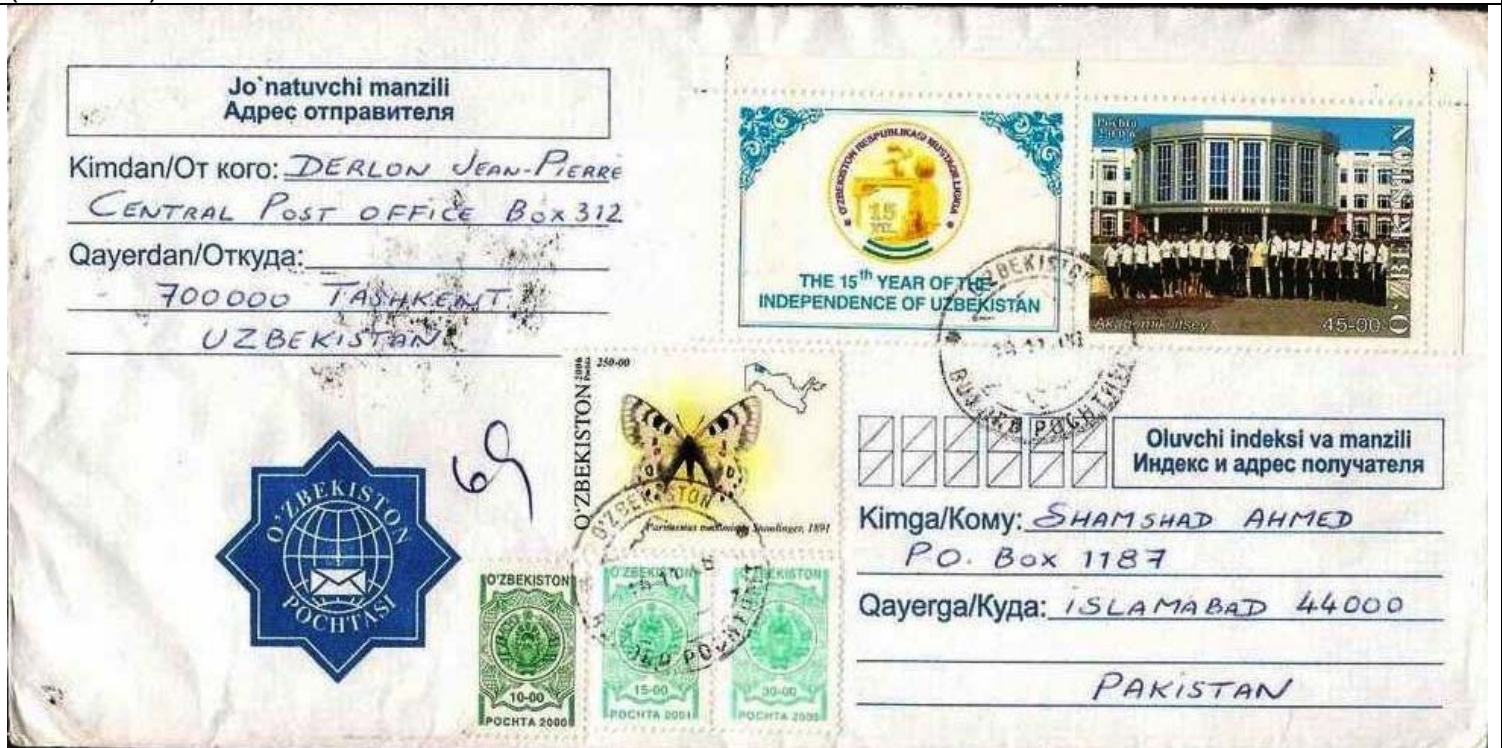 Jo`natuvchi manzili
Адрес отправителя
Kimdan/От кого: DERLON JEAN-PIERRE
CENTRAL POST OFFICE BOX 312
Qayerdan/Откуда:
700000 TASHKENT
UZBEKISTAN
O'ZBEKISTON RESPUBLIKASI MUSTAQILLIGIGA
15
YIL
THE 15th YEAR OF THE
INDEPENDENCE OF UZBEKISTAN
Pochta
2006
Akademik litsey
45-00
O'ZBEKISTON
O'ZBEKISTON
POCHTAMT
250-00
O'ZBEKISTON 2006
Pochta
Staudinger, 1891
O'ZBEKISTON
69
O'ZBEKISTON
POCHTASI
O'ZBEKISTON
10-00
POCHTA 2000
O'ZBEKISTON
15-00
POCHTA 2001
O'ZBEKISTON
30-00
POCHTA 2000
Oluvchi indeksi va manzili
Индекс и адрес получателя
Kimga/Кому: SHAMSHAD AHMED
P.O. BOX 1187
Qayerga/Куда: ISLAMABAD 44000
PAKISTAN